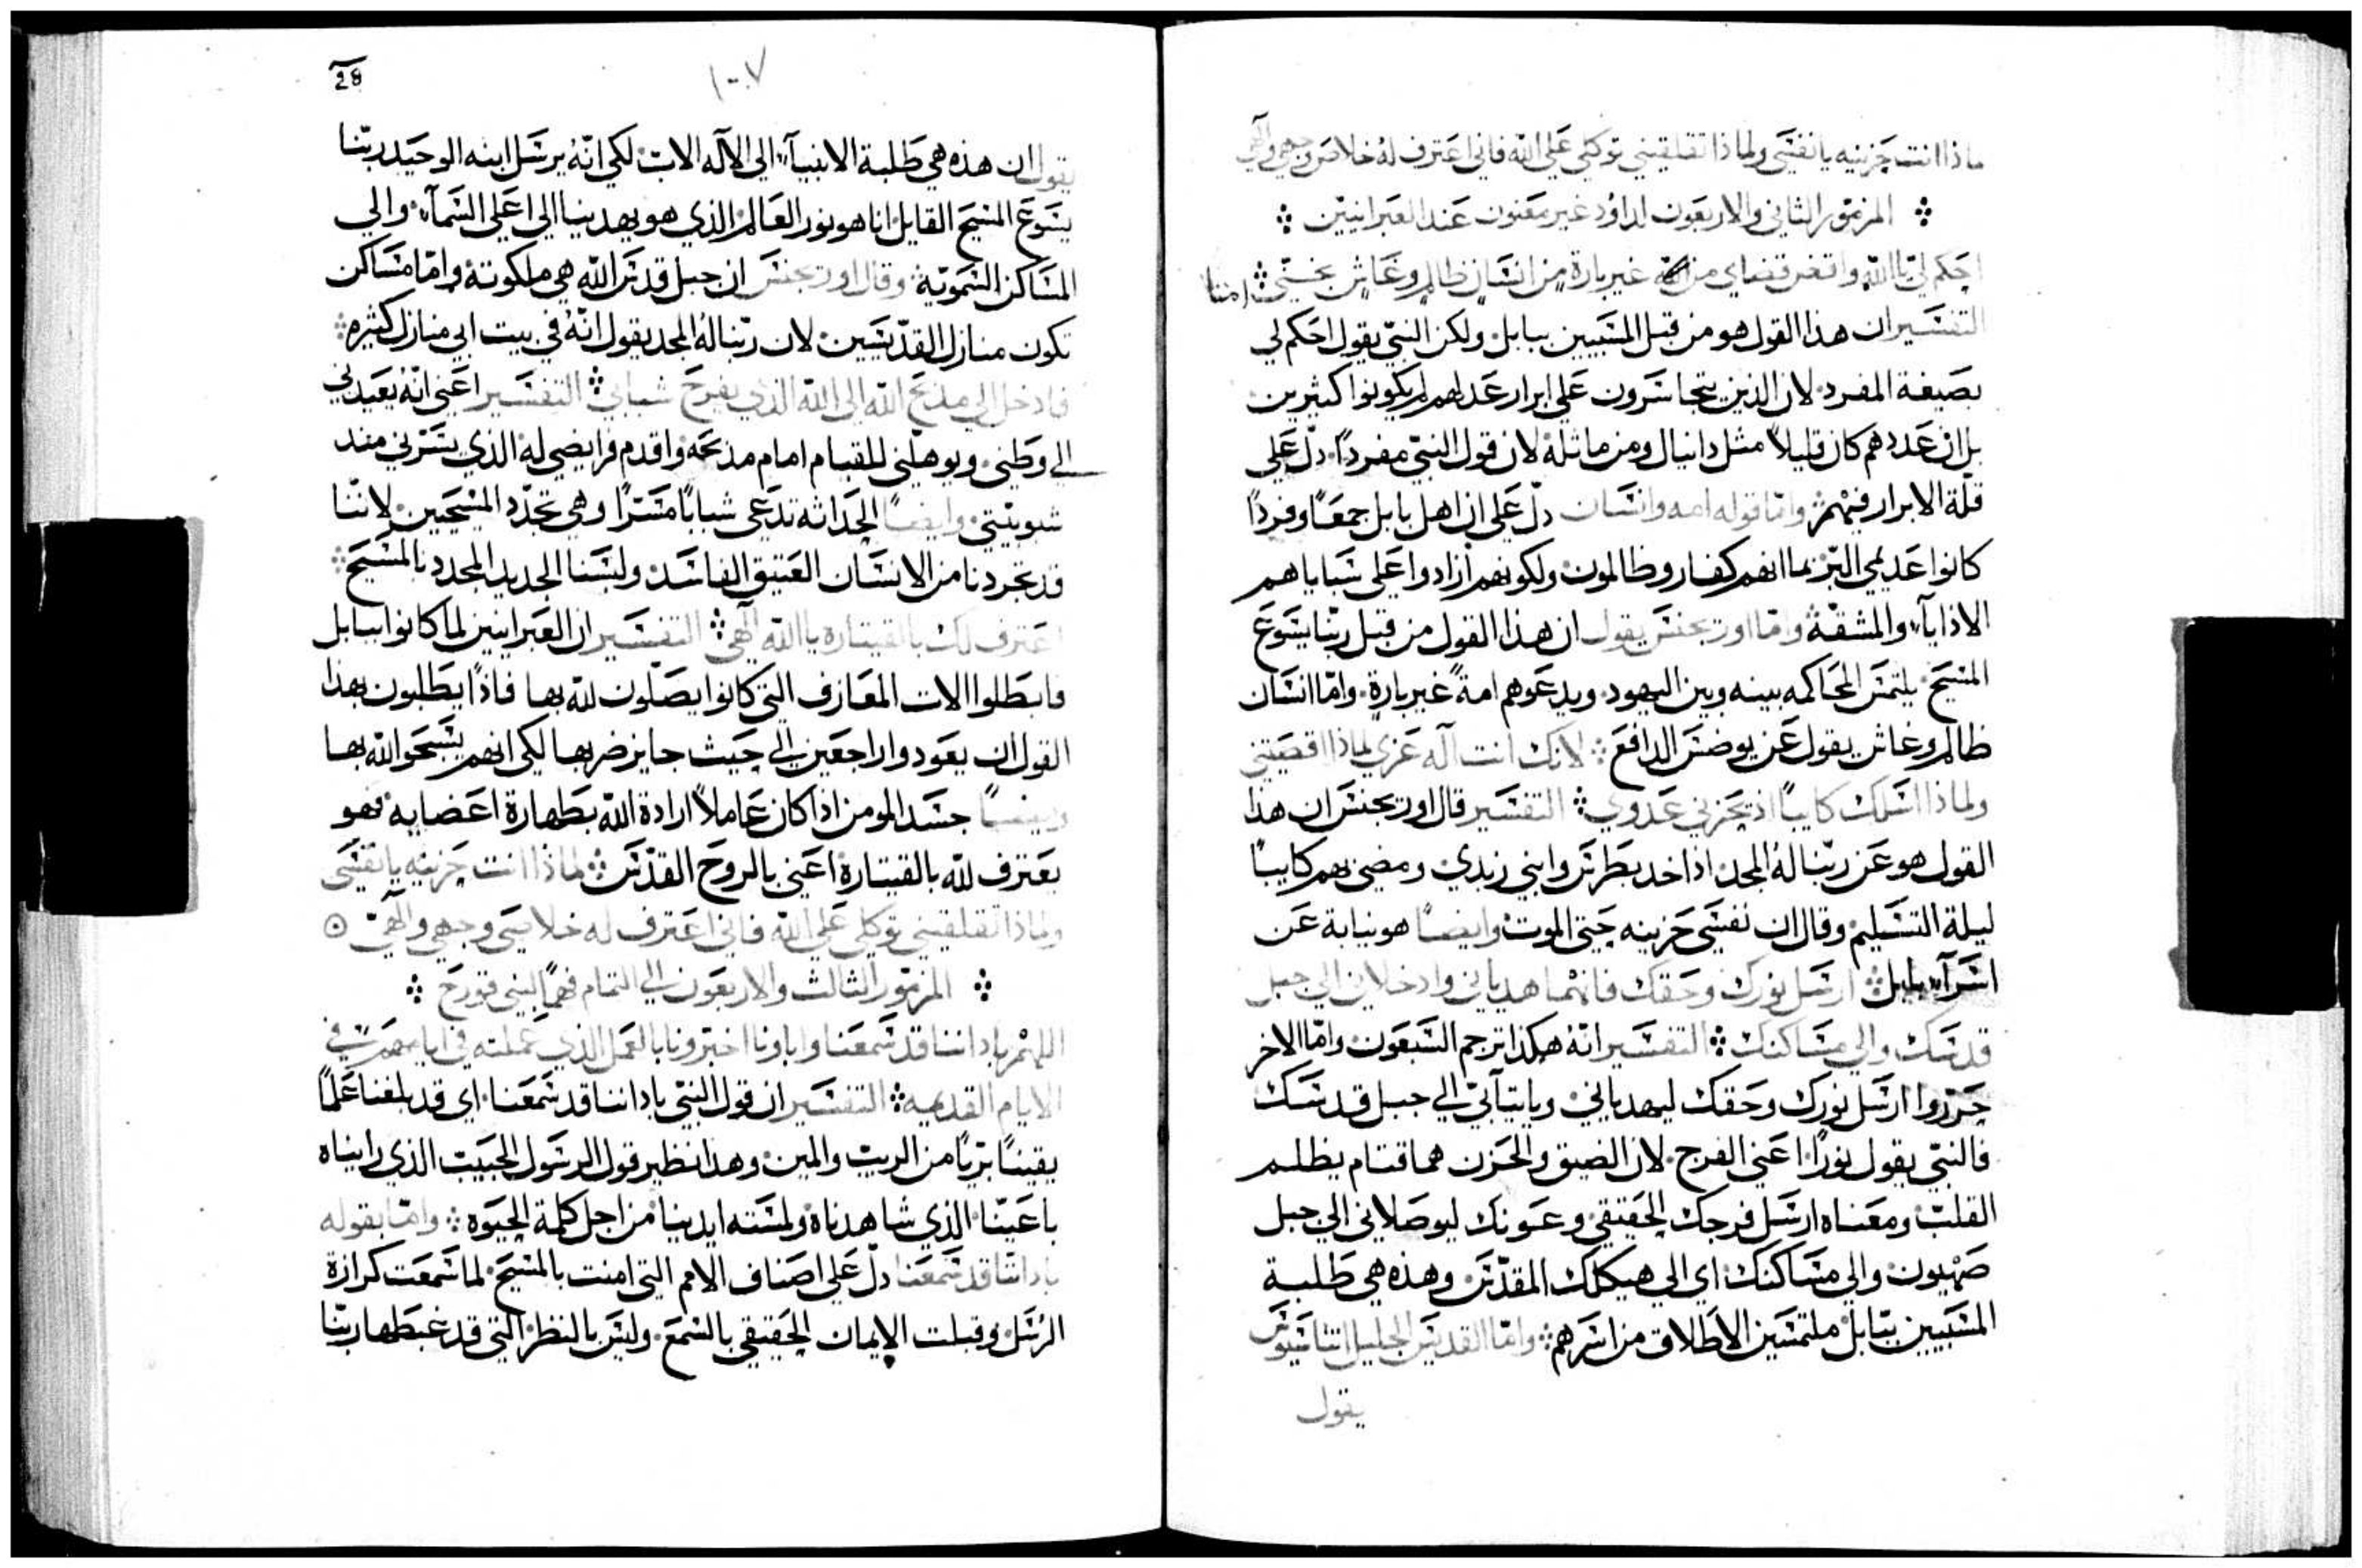 ماذا انت حزينه يا نفسي ولماذا تقلقيني توكلي علي الله فاني اعترف له خلاص وجهي والهي
المزمور الثاني والاربعون لداؤد غير معنون عند العبرانيين
احكم لي يا الله وانتقر قضاي من غير بارة من انسان ظالم وغاش نجيني
التفسير ان هذا القول هو من قبل المسبيين ببابل ولكن النبي يقول احكم لي
بصيغة المفرد لان الذين يتجاسرون علي ابرار عدلهم لم يكونوا كثيرين
بل ان عددهم كان قليلاً مثل دانيال ومن ماثله لان قول النبي مفرداً دل علي
قلة الابرار فيهم وامّا قوله امه وانسان دل علي ان اهل بابل جمعاً وفرداً
كانوا عديمي البر بما انهم كفار وظالمون ولكونهم ازادوا علي سباياهم
الاذايا والمشقة وامّا اوريجنس يقول ان هذا القول من قبل ربنا يسوع
المسيح يلتمس المحاكمه بينه وبين اليهود ويدعوهم امةً غير بارة وامّا انسان
ظالم وغاش يقول عن يوضس الدافع لانك انت آله عزي لماذا اقصيتني
ولماذا اسلك كايباً اذ يحزني عدوي التفسير قال اوريجنس ان هذا
القول هو عن ربنا له المجد اذ اخد بطرس وابني زبدي ومضي بهم كايباً
ليلة التسليم وقال ان نفسي حزينه حتي الموت وايضاً هو نيابة عن
اسرآء بابل ارسل نورك وحقك فانهما هدياني وادخلاني الي جبل
قدسك والي مساكنك التفسير انه هكذا ترجم السبعون وامّا الاخر
حرروا ارسل نورك وحقك ليهدياني وياتيآني الي جبل قدسك
فالنبي يقول نوراً اعني الفرج لان الضيق والحزن هما قتام يظلم
القلب ومعناه ارسل فرجك الحقيقي وعونك ليوصلاني الي جبل
صهيون والي مساكنك اي الي هيكلك المقدس وهذه هي طلبة
المسبيين ببابل ملتمسين الاطلاق من اسرهم وامّا القديس الجليل اتناسيوس
يقول
28
١٠٧
يقول ان هذه هي طلبة الانبيآء الي الآله الاب لكي انه يرسل ابنه الوحيد ربنا
يسوع المسيح القايل انا هو نور العالم الذي هو يهدينا الي اعلي السمآء والي
المساكن السموية وقال اوريجنس ان جبل قدس الله هي ملكوته وامّا مساكن
تكون منازل القديسين لان ربنا له المجد يقول انه في بيت ابي منازل كثيره
فادخل الي مذبح الله الي الله الذي يفرح شبابي التفسير اعني انه يعيدني
الي وطني ويوهلني للقيام امام مذبحه واقدم فرايضي له الذي يسرني منذ
شبوبيتي وايضاً الحداثه تدعي شباباً مسراً وهي تجدد المسيحيين لاننا
قد تجردنا من الانسان العتيق الفاسد ولبسنا الجديد المجدد بالمسيح
اعترف لك بالقيتاره يا الله آلهي التفسير ان العبرانيين لما كانوا ببابل
فابطلوا الات المعازف التي كانوا يصلون لله بها فاذاً يطلبون بهذا
القول ان يعودوا راجعين الي حيث جايز ضربها لكي انهم يسبحوا الله بها
وايضاً جسد المومن اذا كان عاملاً ارادة الله بطهارة اعضايه فهو
يعترف لله بالقيتارة اعني بالروح القدس لماذا انت حزينه يا نفسي
ولماذا تقلقيني توكلي علي الله فاني اعترف له خلاصي وجهي والهي
المزمور الثالث والاربعون الي التمام فهماً لبني قورح
اللهم باداننا قد سمعنا واباونا اخبرونا بالعمل الذي عملته في ايامهم في
الايام القديمه التفسير ان قول النبي باداننا قد سمعنا اي قد بلغنا علماً
يقيناً برياً من الريب والمين وهذا نظير قول الرسول الحبيب الذي رايناه
باعيننا الذي شاهدناه ولمسته ايدينا من اجل كلمة الحيوه وامّا بقوله
باداننا قد سمعنا دل علي اصناف الامم التي امنت بالمسيح لما سمعت كرازة
الرسل وقبلت الايمان الحقيقي بالسمع وليس بالنظر التي قد غبطها ربنا